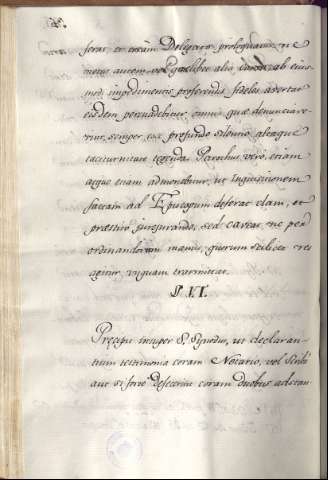 feras, et coram Delegato proloquaris, ne
metus autem vel quælibet alia causa ab ejus-
modi impedimentis proferendis fideles avertat
eisdem persuadebitur, omnia quæ denunciave
rint, semper, ex profundo silentio, altaque
taciturnitate tegenda. Parochus vero, etiam
atque etiam admonebitur, ut Inquisitionem
factam ad Episcopum deferat clam, et
præstito jurejurando, sed caveat, ne per
ordinandorum manus, quorum scilicet res
agitur, unquam transmittat.
§. VI.
Præcipit insuper S. Synodus, ut declaran-
tium testimonia coram Notario, vel Scriba
aut si forte defecerint coram duobus adstan